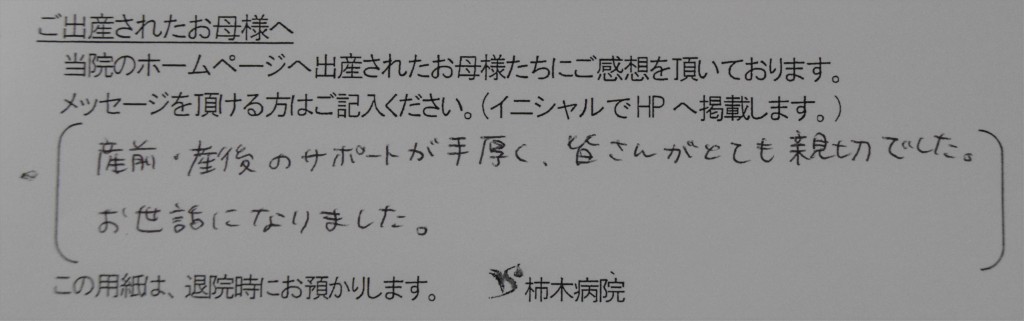 ご出産されたお母様へ
当院のホームページへ出産されたお母様たちにご感想を頂いております。
メッセージを頂ける方はご記入ください。(イニシャルでHPへ掲載します。)
産前・産後のサポートが手厚く、皆さんがとても親切でした。
お世話になりました。
この用紙は、退院時にお預かりします。 柿木病院